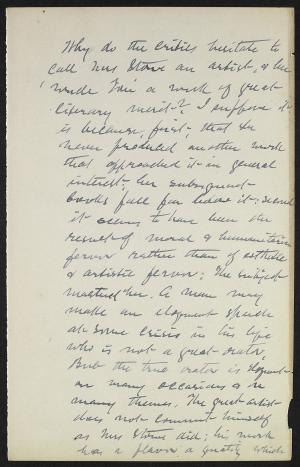 Why do the critics hesitate to
call Mrs Stowe an artist, & her
'Uncle Tom' a work of great
literary merit? I suppose it
is because, first, that she
never produced another work
that approached it in general
interest; her subsequent
books fall far below it; second
it seems to have been the
result of moral & humanitarian
fervor rather than of esthetic
& artistic fervor; The subject
mastered her. A man may
make an eloquent speech
at some crisis in his life
who is not a great orator,
But the true orator is eloquent
on many occasions & on
many themes. The great artist
does not commit himself
as Mrs Stowe did; his work
has a flavor a quality which